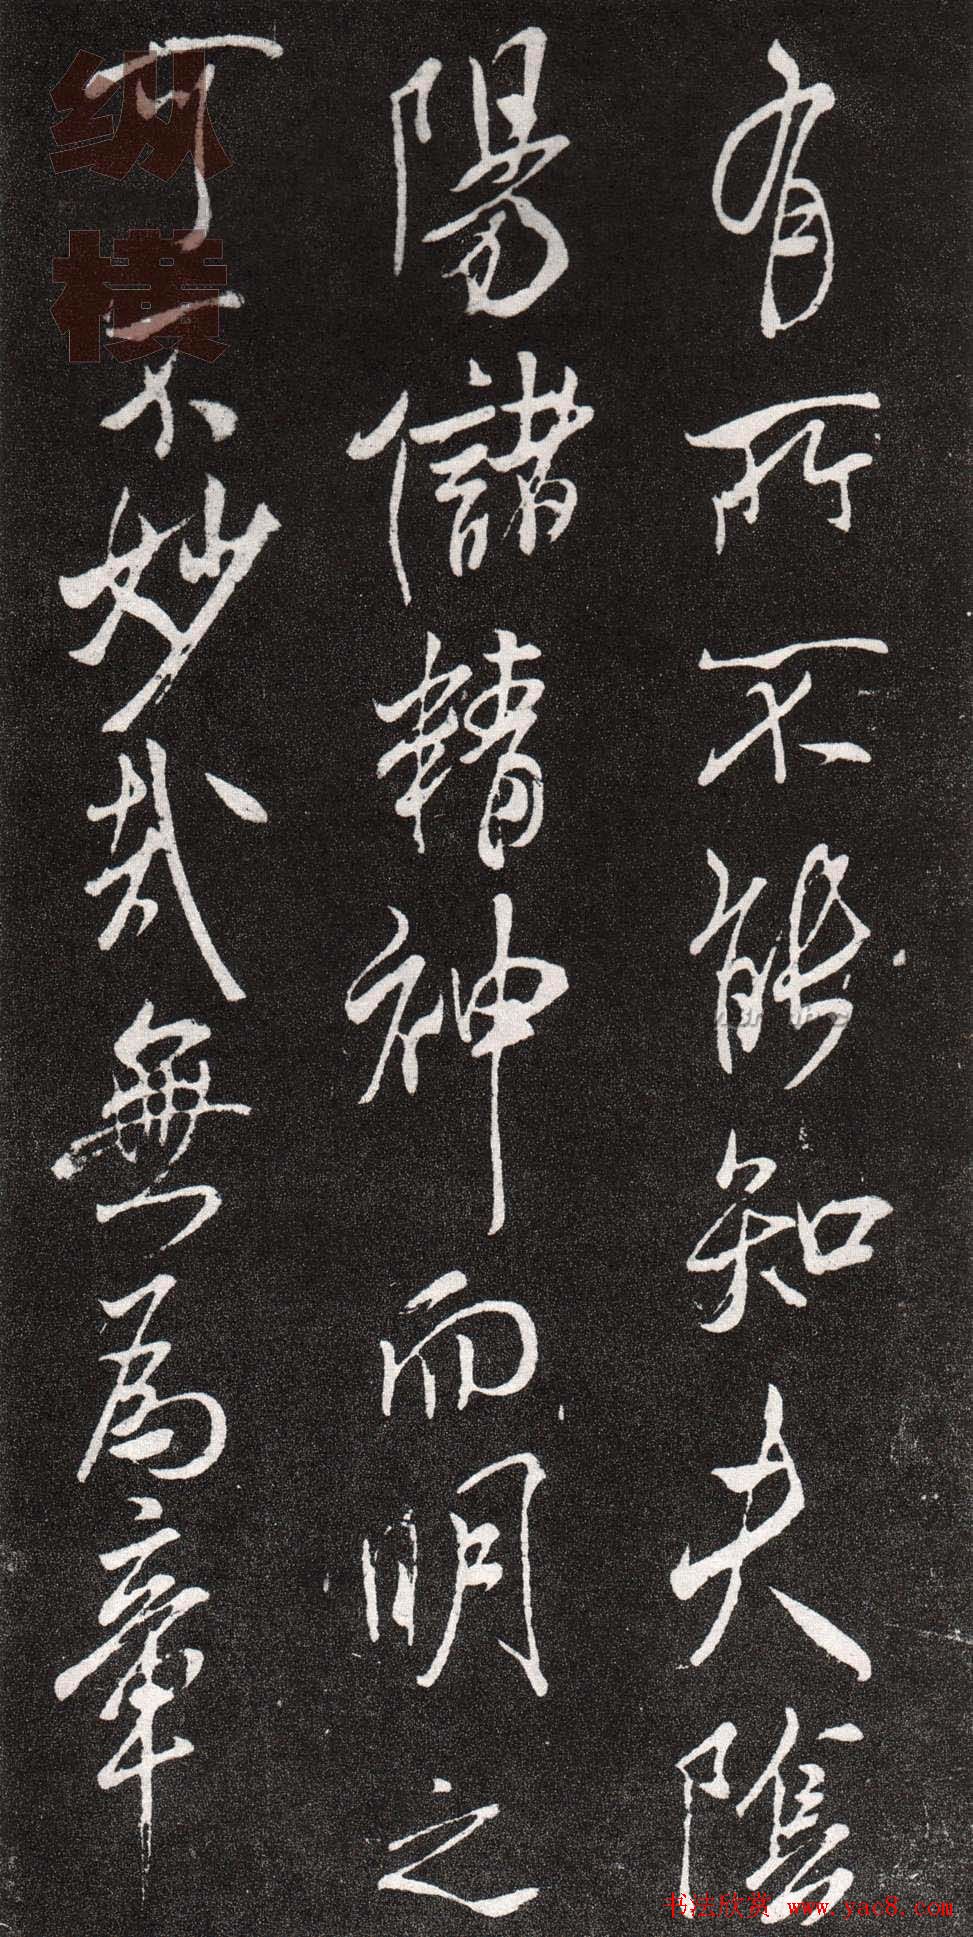 有所不能知夫陰
陽儲精神而明之
可不妙哉無為章
纵横
书法欣赏 www.yac8.com